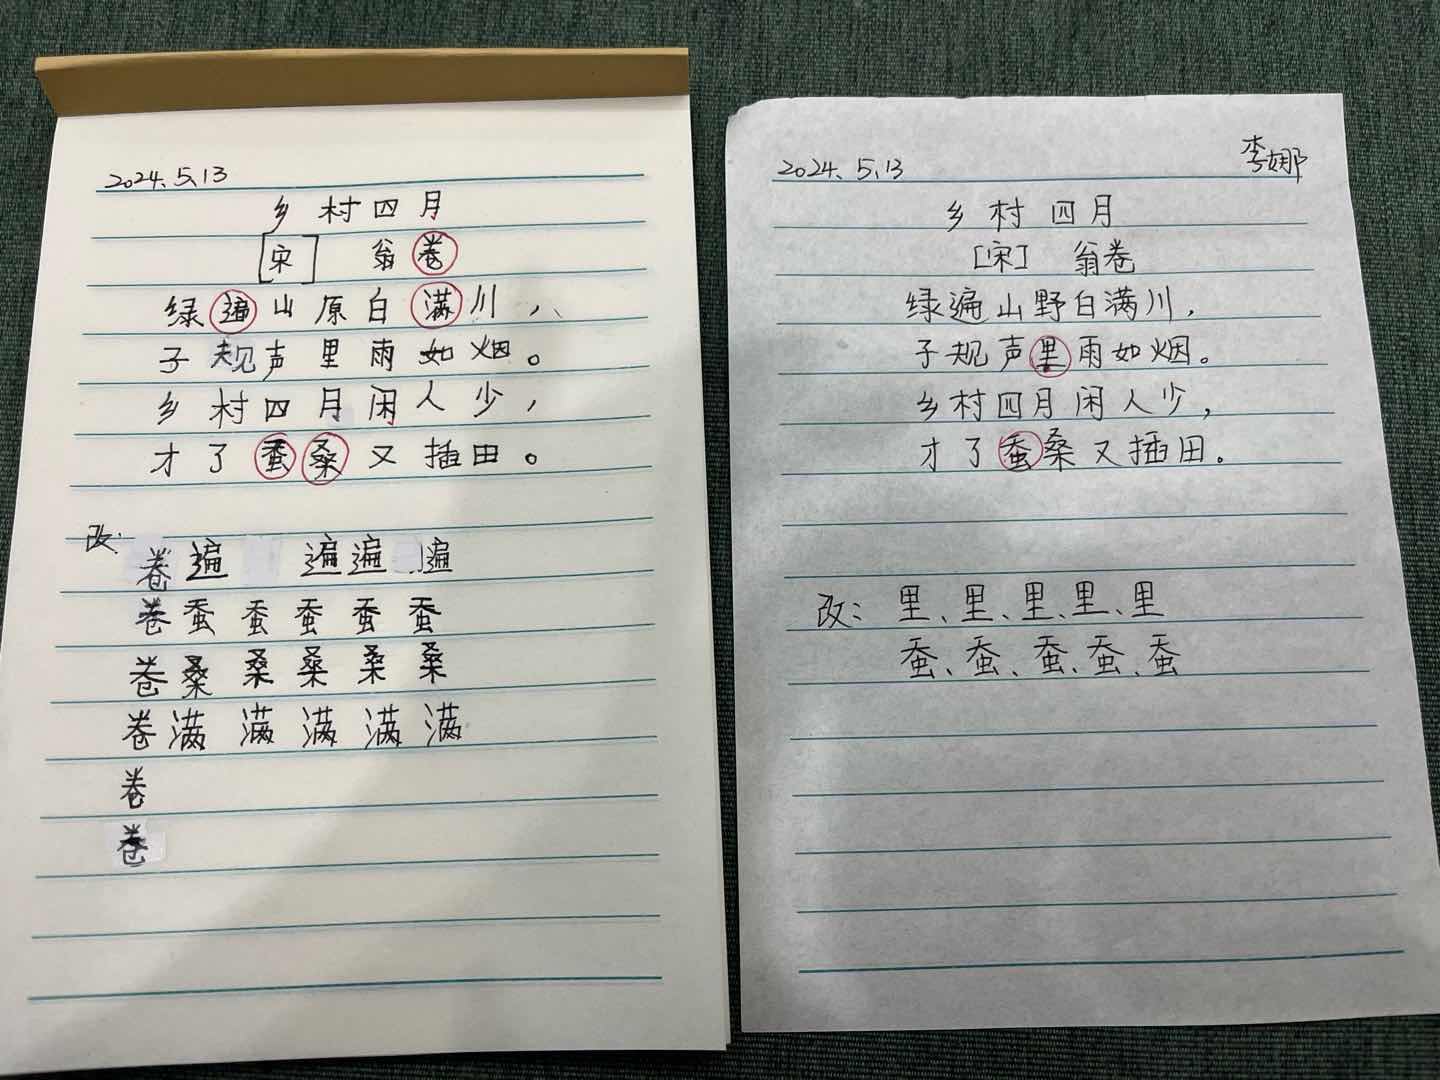 2024.5.13
乡村四月
[宋] 翁卷
绿遍山原白满川，
子规声里雨如烟。
乡村四月闲人少，
才了蚕桑又插田。
改：
卷遍 遍遍遍
卷蚕蚕蚕蚕蚕
卷桑桑桑桑桑
卷满满满满满
卷
卷
李娜
2024.5.13
乡村四月
[宋] 翁卷
绿遍山野白满川，
子规声里雨如烟。
乡村四月闲人少，
才了蚕桑又插田。
改：里、里、里、里、里
蚕、蚕、蚕、蚕、蚕